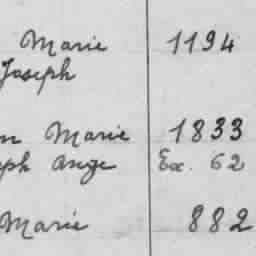 Marie 1194
Joseph
n Marie 1833
ph Ange Ex. 62
Marie 882